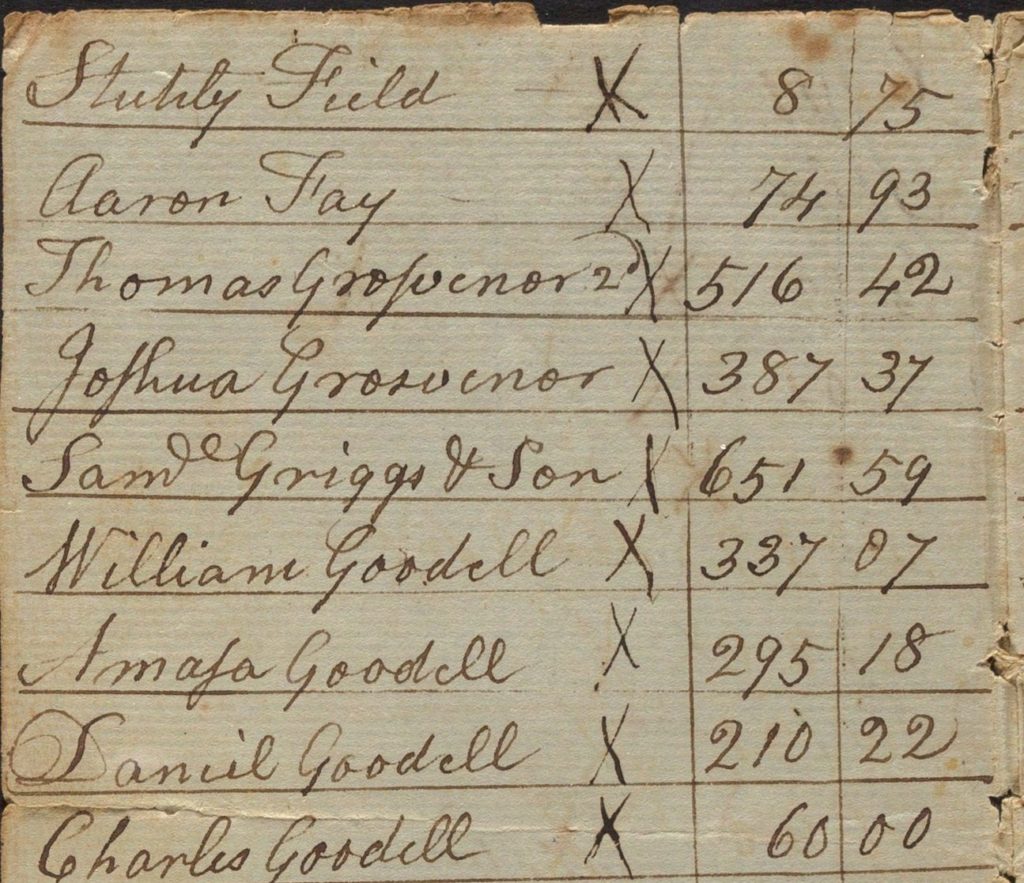 Stukly Field X 8 75
Aaron Fay X 74 93
Thomas Grosvenor 2d X 516 42
Joshua Grosvenor X 387 37
Saml Griggs & Son X 651 59
William Goodell X 337 07
Amasa Goodell X 295 18
Daniel Goodell X 210 22
Charles Goodell X 60 00